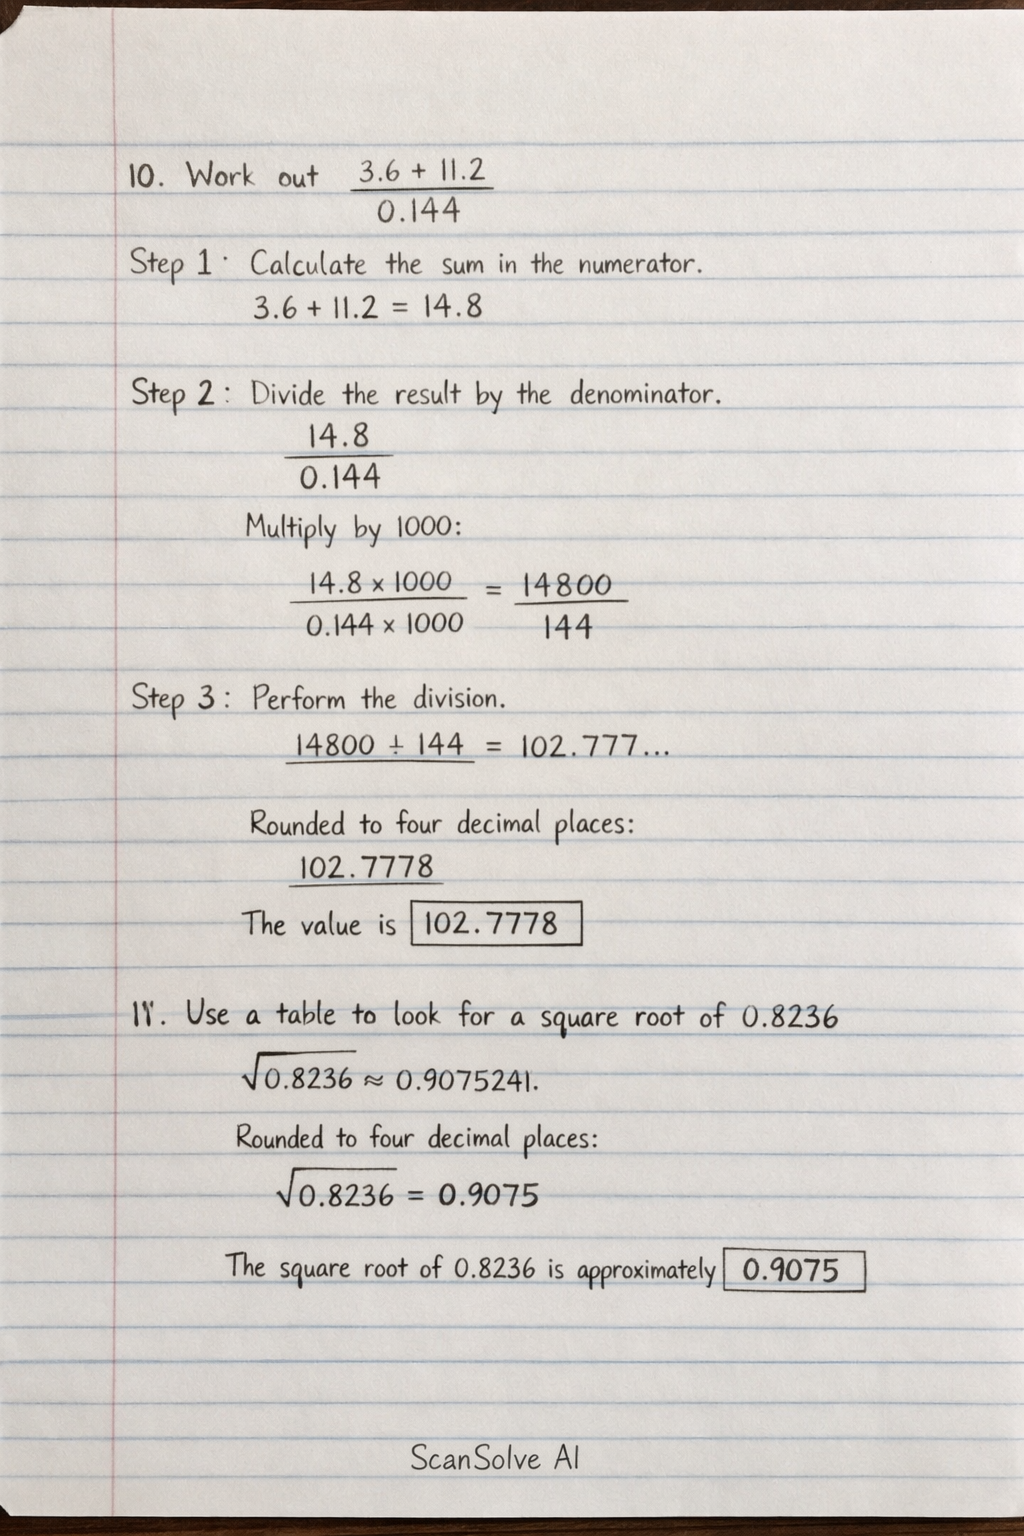 10. Work out 3.6 + 11.2
0.144
Step 1· Calculate the sum in the numerator.
3.6 + 11.2 = 14.8
Step 2: Divide the result by the denominator.
14.8
0.144
Multiply by 1000:
14.8 × 1000 = 14800
0.144 × 1000 144
Step 3: Perform the division.
14800 ÷ 144 = 102.777...
Rounded to four decimal places:
102.7778
The value is 102.7778
Use a table to look for a square root of 0.8236
√0.8236 ≈ 0.9075241.
Rounded to four decimal places:
√0.8236 = 0.9075
The square root of 0.8236 is approximately 0.9075
ScanSolve AI